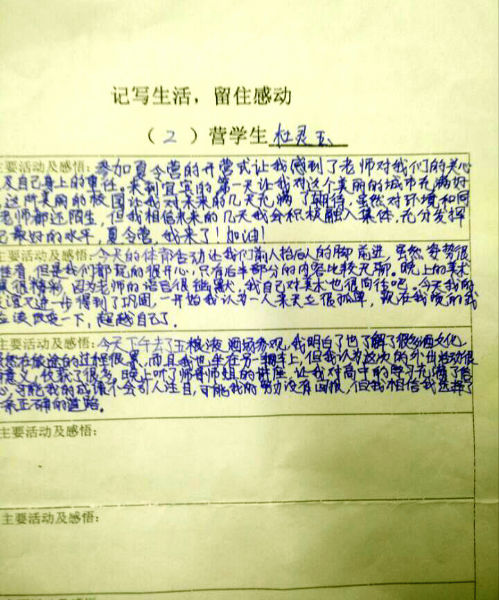 记写生活，留住感动
（2）营学生 杜灵玉
主要活动及感悟：参加夏令营的开营式让我感到了老师对我们的关心
及自己身上的责任。来到宜宾的第一天让我对这个美丽的城市充满好
这所美丽的校园让我对未来的几天充满了期待。虽然对环境和同
老师都还陌生，但我相信未来的几天我会积极融入集体，充分发挥
己最好的水平，夏令营，我来了！加油！
主要活动及感悟：今天的体育活动让我们前人抬后人的脚前进，虽然姿势很
难看，但是我们都玩的很开心，只有后半部分的内容比较无聊。晚上的美术
很精彩，因为老师的语言很幽默，我自己对美术也很向往吧。今天我的
友谊又进一步得到了巩固，一开始我认为一人来天会很孤单，现在我
应该改变一下，超越自己了。
主要活动及感悟：今天下午去了五粮液酒场参观，我明白了也了解了很多酒文化。
然在旅途的过程很累，而且我也坐在另一辆车上，但我认为这次的外出活动很
有意义，收获了很多，晚上听了师哥师姐的讲座，让我对高中的学习充满了信
心，可能我的成绩不会引人注目，可能我的努力没有回报，但我相信我选择了
一条正确的道路。
主要活动及感悟：
主要活动及感悟：
主要活动及感悟：